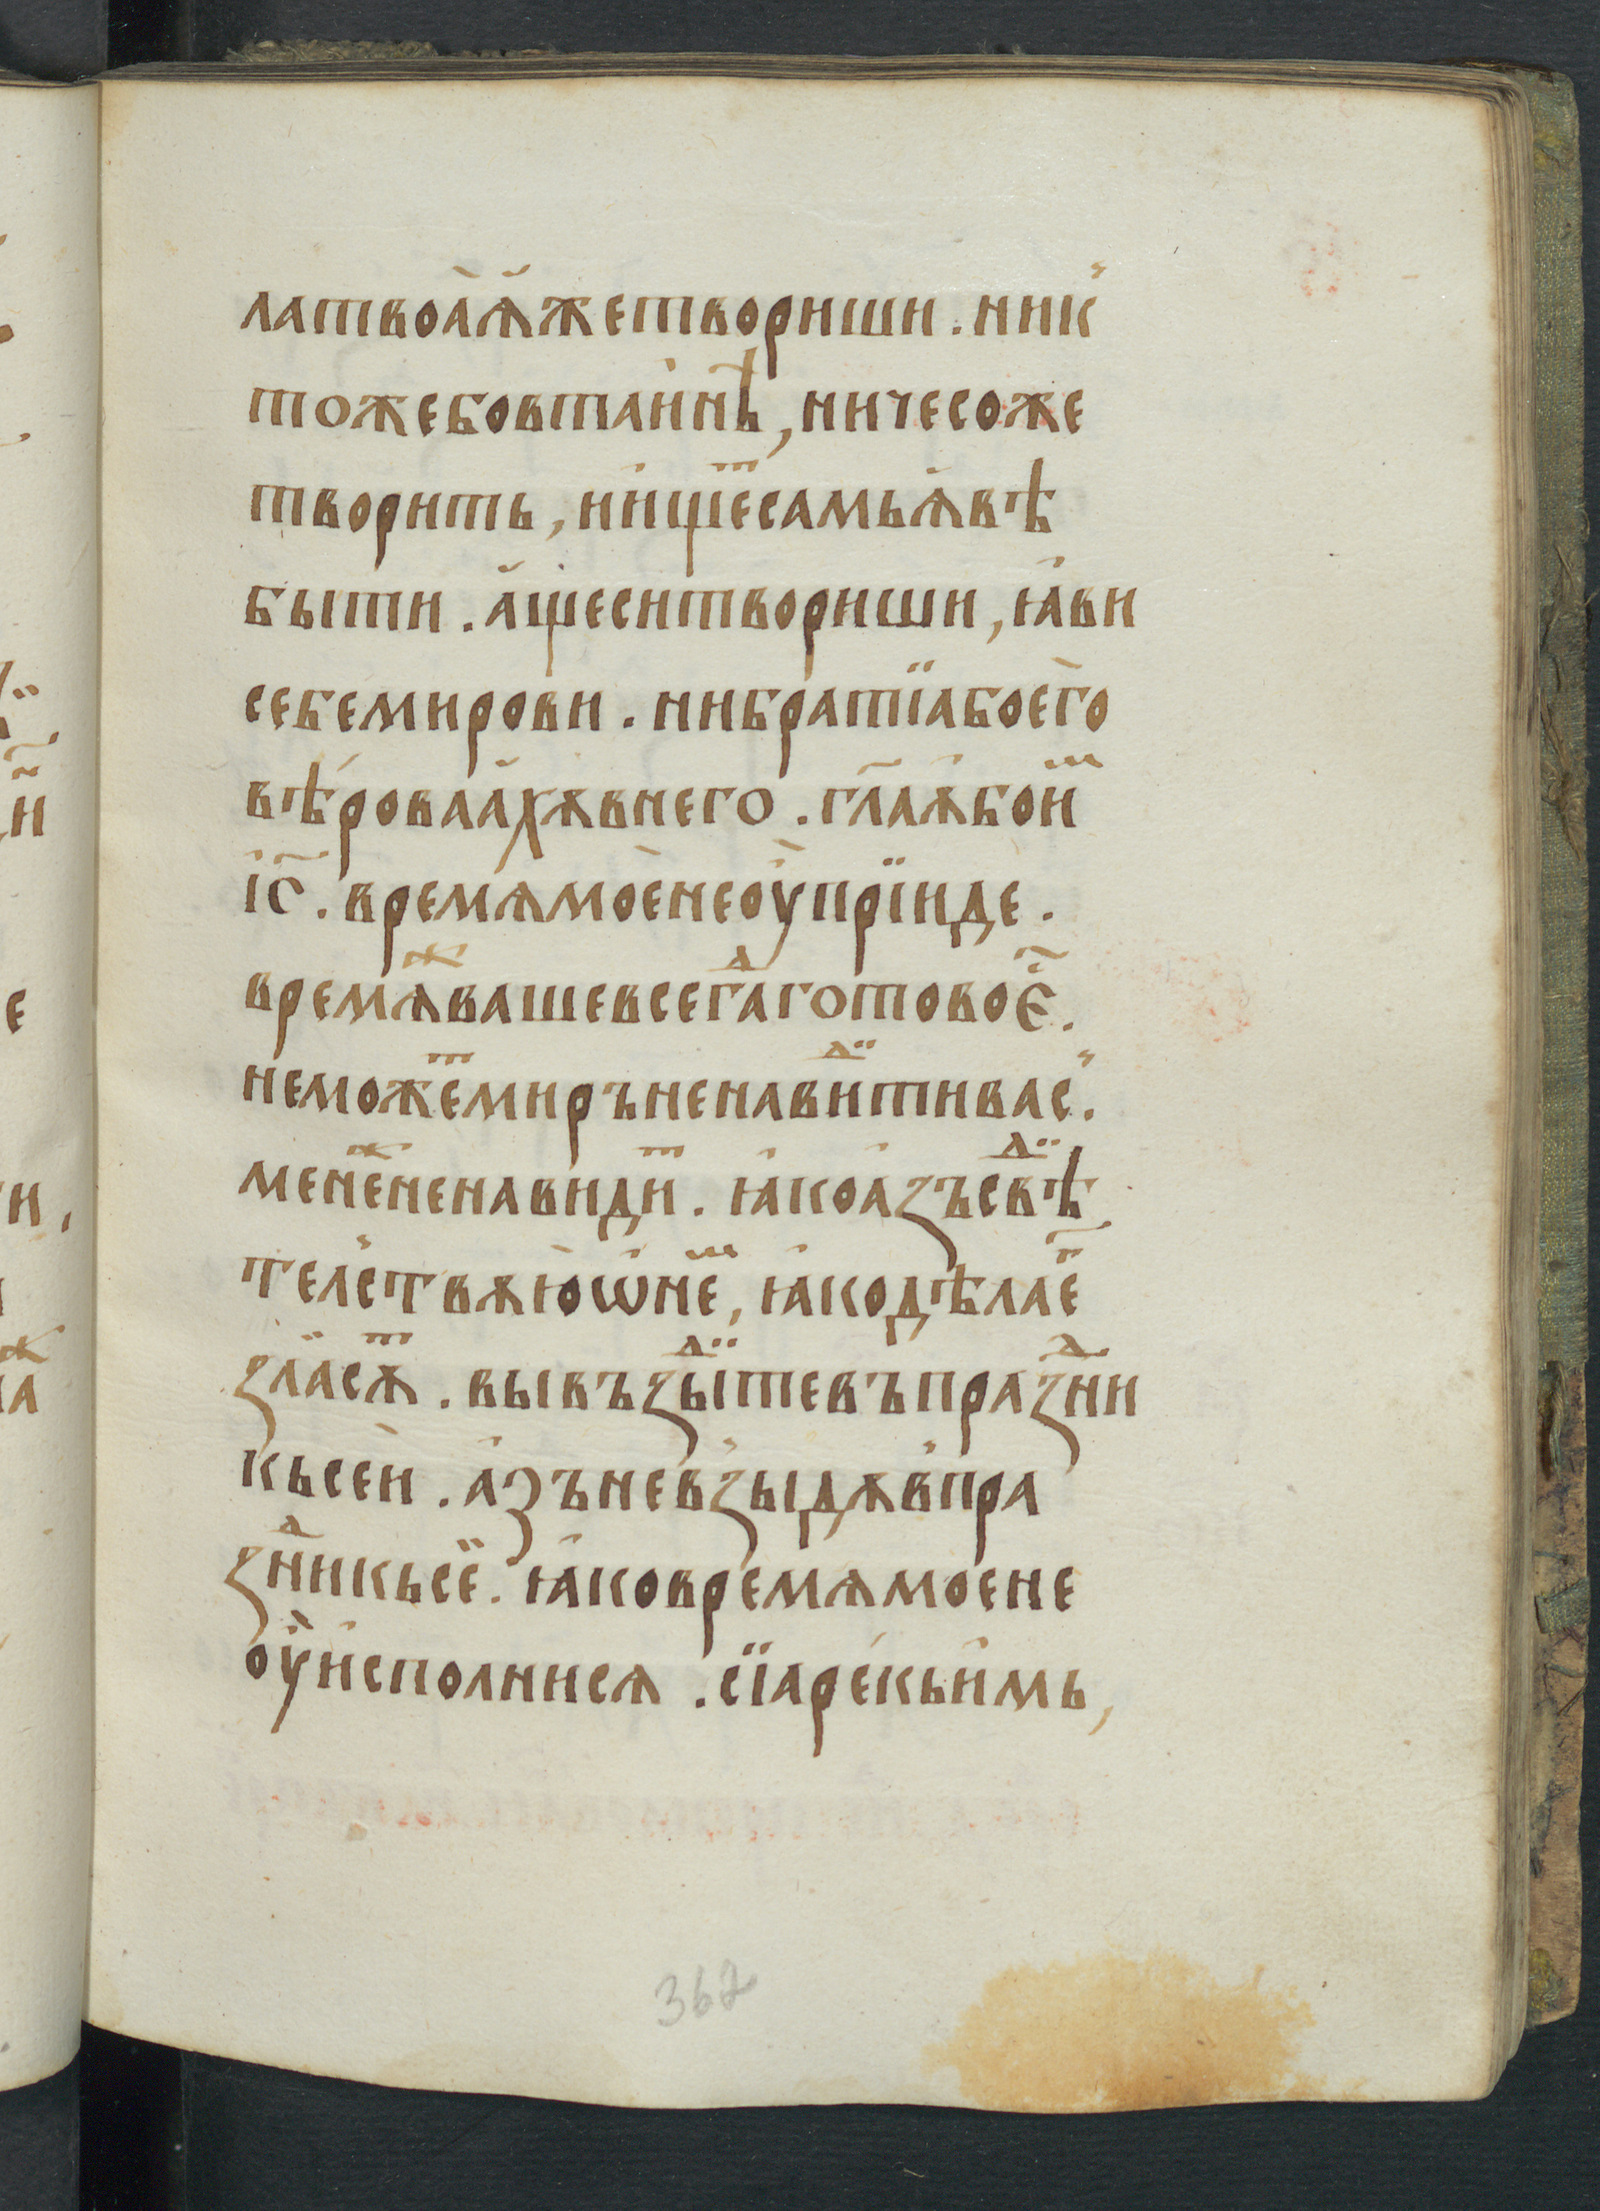 латвоаѧ҆жетвориши. ник
тожебовтаинѣ, ничесоже
творить, нищеⷮсамьꙗ҆вѣ
быти. а҆щеситвориши, ꙗ҆ви
себемирови. нибратїабоего
вѣ́роваа҆хѫвнего. гл҃аѧ҆бои҆ⷨ
і҆с҃. времѧмоѐнеоу҆прїиде.
времѧⷤвашевсегаⷣготовоє҆҃.
неможеⷮмиръненавиⷣтивас.
менеⷤненавидиⷮ. ꙗ҆коа҆зъсвѣⷣ
телствѫюѡ҆неⷨ, ꙗ҆кодѣлае҆ⷯ
зласѫⷮ. вывъзыⷣтевъпразⷣни
ксеи. а҆зъневзыдѫвпра
зⷣникьсе. ꙗ҆ковремѧмоене
оу҆и҆сполнисѧ. сїарекьи҆мь,
362